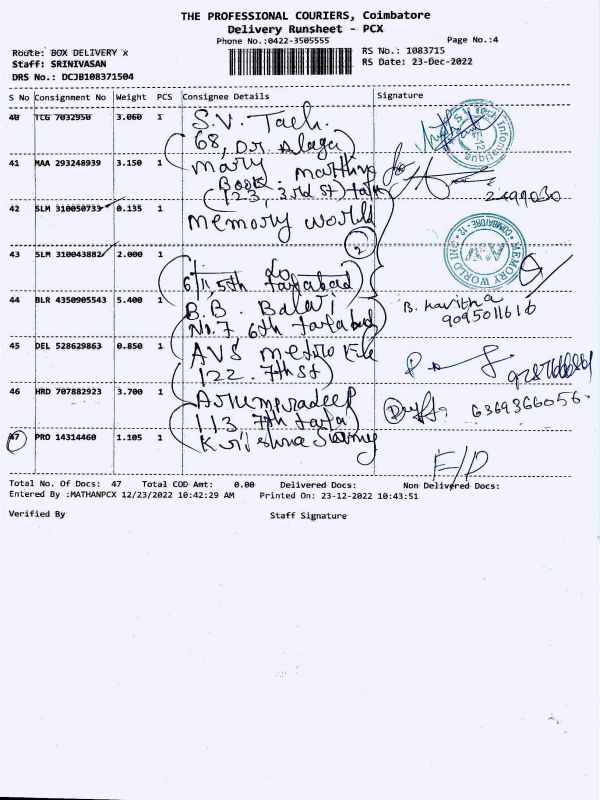 THE PROFESSIONAL COURIERS, Coimbatore
Delivery Runsheet - PCX
Phone No.:0422-3505555
Page No.:4
Route: BOX DELIVERY x
RS No.: 1083715
Staff: SRINIVASAN
RS Date: 23-Dec-2022
DRS No.: DCJB108371504
S No Consignment No Weight PCS Consignee Details Signature
40 TCG 7032950 3.060 1 S.V. Tach.
68, Dr. Alaga
41 MAA 293248939 3.150 1 mary marthing
Book
(123, 3rd St)
2499030
42 SLM 310050733 0.135 1 memory world
2
43 SLM 310043882 2.000 1
5th tatabad
MEMORY WORLD INC COIMBATORE - 12
44 BLR 4350905543 5.400 1 B.B. Balaji
B. Kavitha
9095011616
No.7, 6th tatabad
45 DEL 528629863 0.850 1 AVS metro
122. 7th St
46 HRD 707882923 3.700 1 Arumpradeep
6369366056
113 7th tata
47 PRO 14314460 1.105 1 Krishna Samy
E/D
Total No. Of Docs: 47 Total COD Amt: 0.00 Delivered Docs: Non Delivered Docs:
Entered By :MATHANPCX 12/23/2022 10:42:29 AM Printed On: 23-12-2022 10:43:51
Verified By Staff Signature